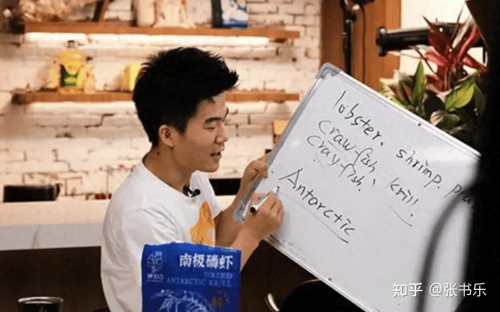 lobster、shrimp.
crawfish、krill.
crayfish.
Antarctic
南极磷虾
ANTARCTIC KRILL
知乎 @张书乐